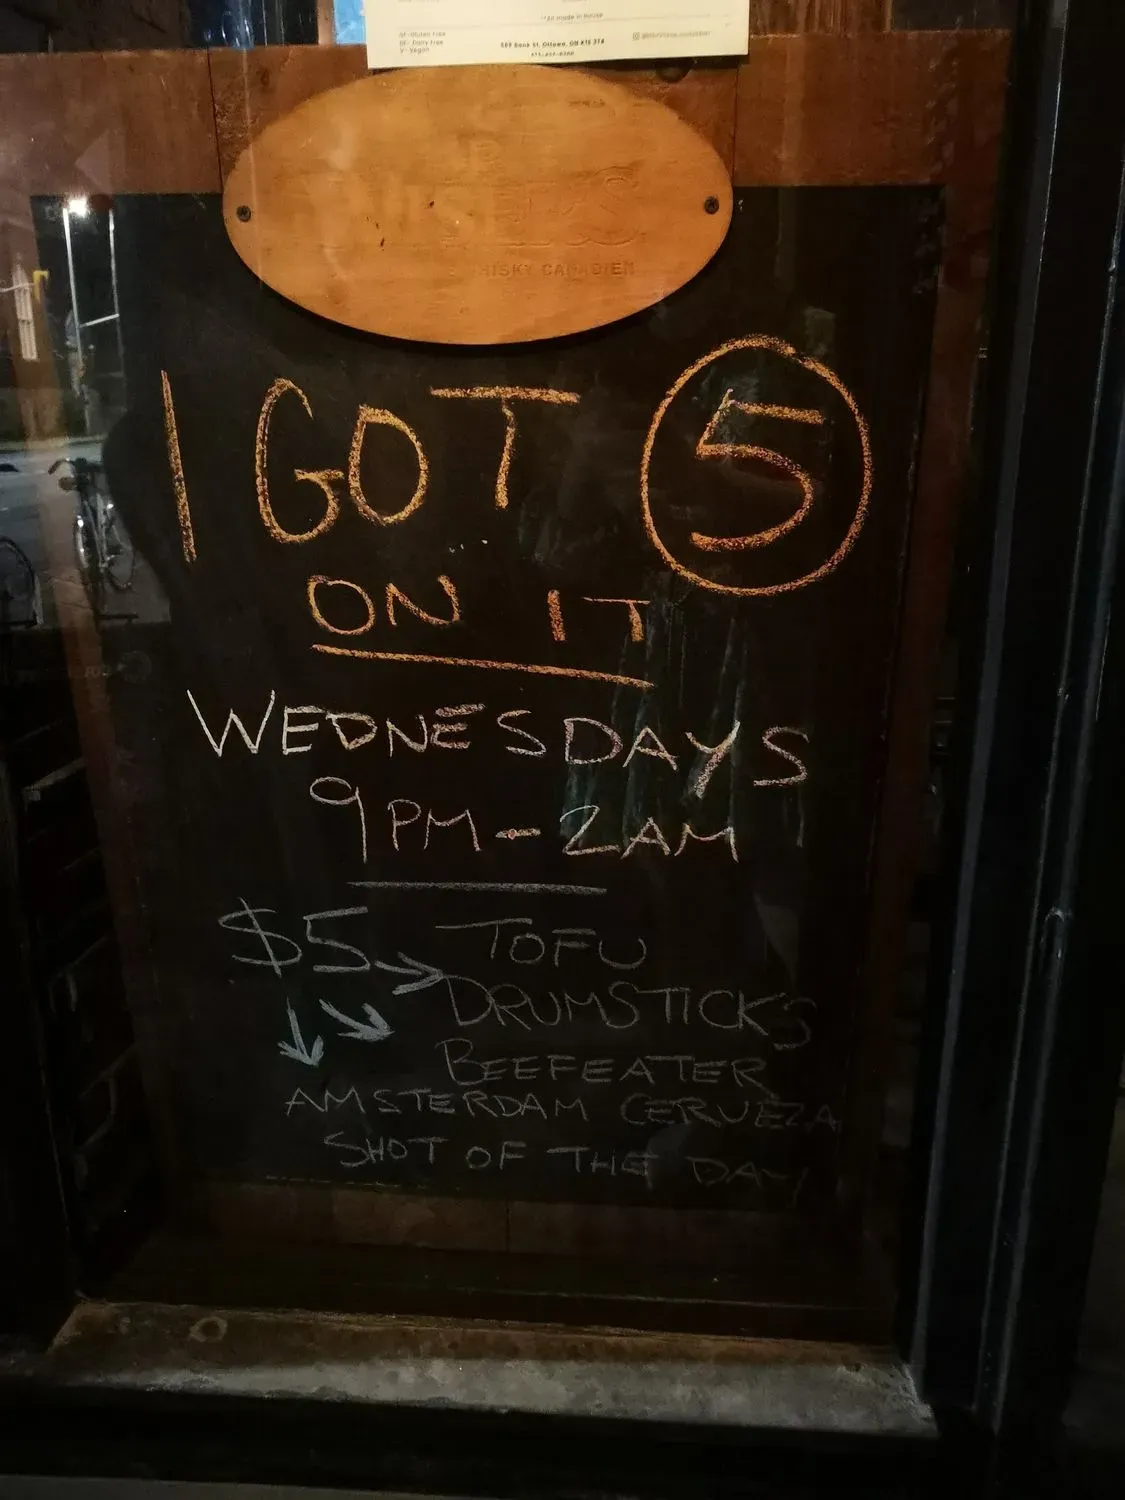 **All made in house
GF- Gluten free
DF- Dairy free
V- Vegan
589 Bank St, Ottawa, ON K1S 3T4
J.P.
WISER'S
WHISKY CANADIEN
I GOT 5
ON IT
WEDNESDAYS
9PM-2AM
$5 → TOFU
DRUMSTICKS
BEEFEATER
AMSTERDAM CERVEZA
SHOT OF THE DAY